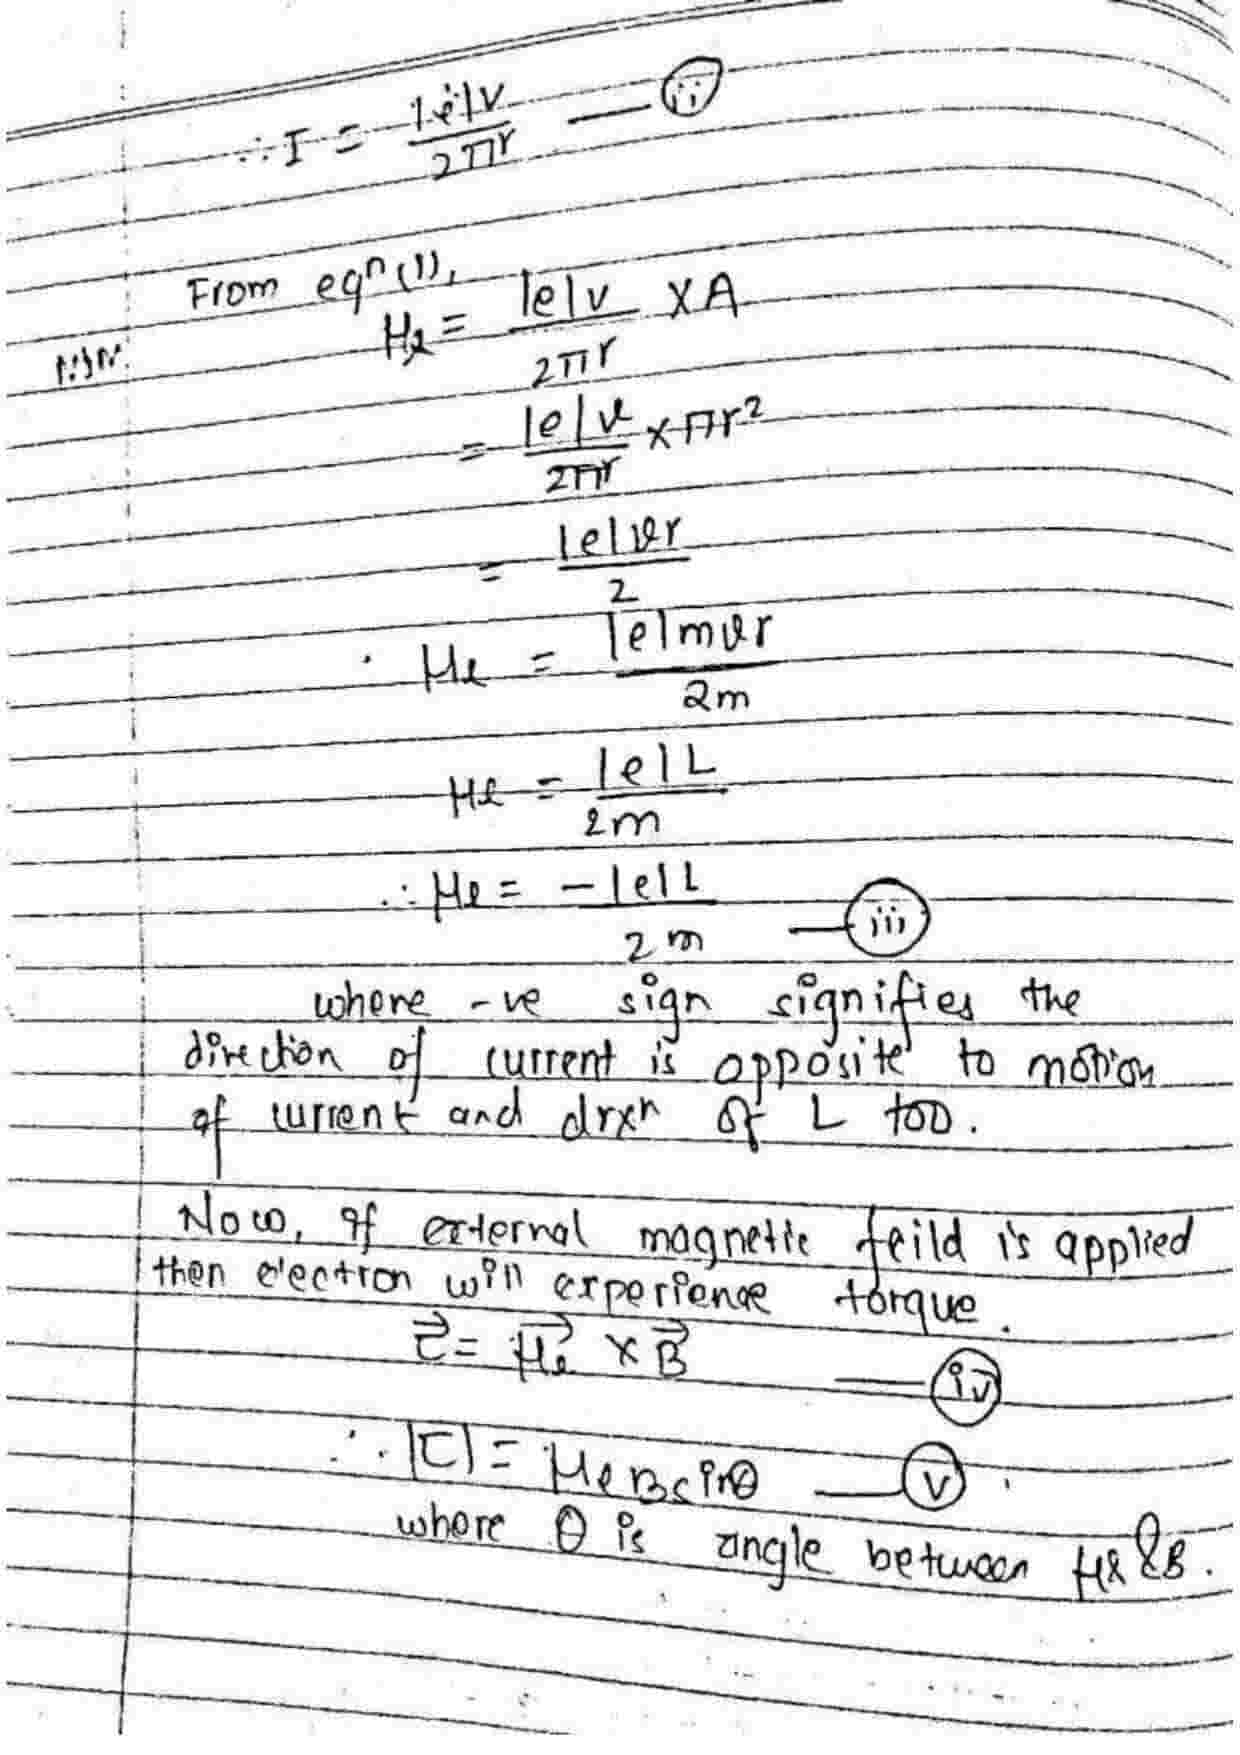 ∴ I = |e|v / 2πr — (ii)
From eqⁿ (1),
μl = |e|v / 2πr × A
= |e|v / 2πr × πr²
= |e|vr / 2
∴ μl = |e|mvr / 2m
μl = |e|L / 2m
∴ μl = -|e|L / 2m — (iii)
where -ve sign signifies the
direction of current is opposite to motion
of current and drxn of L too.
Now, if external magnetic feild is applied
then electron will experience torque.
τ⃗ = μ⃗l × B⃗ — (iv)
∴ |τ| = μl B sinθ — (v)
where θ is angle between μl & B.